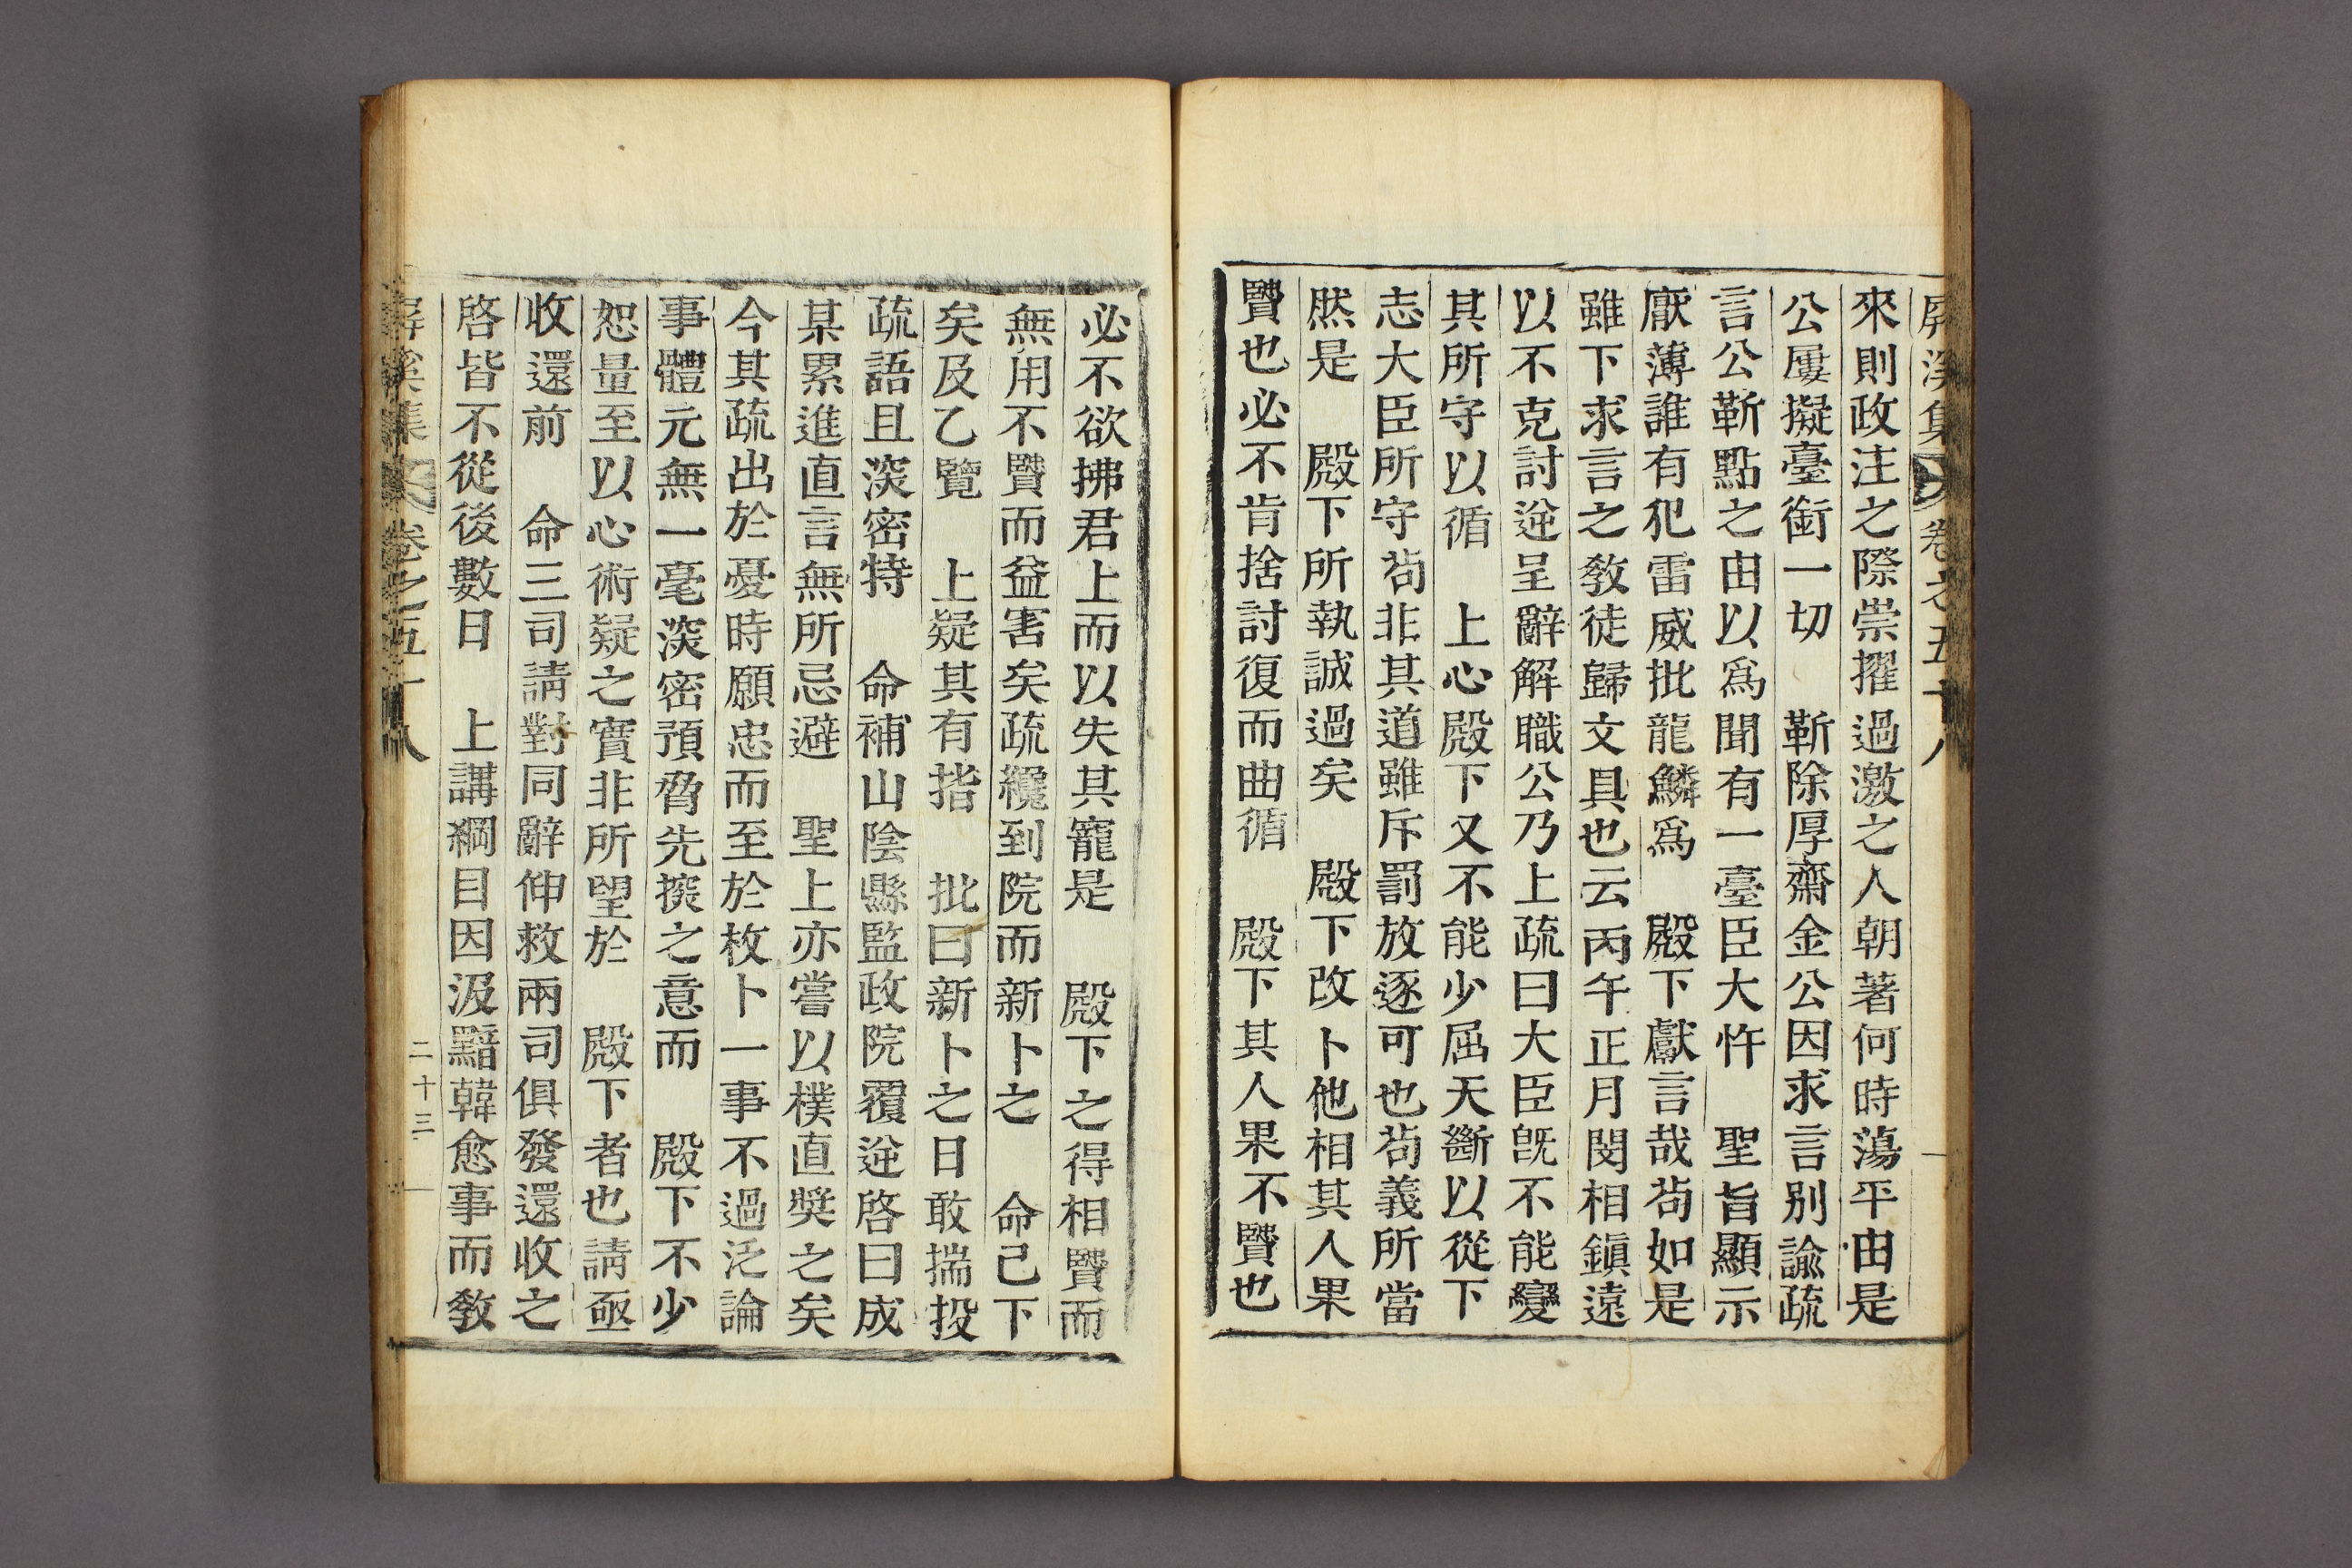 屛溪集 卷之五十八
來則政注之際崇擢過激之人朝著何時蕩平由是
公屢擬臺銜一切 靳除厚齋金公因求言別諭疏
言公靳點之由以爲聞有一臺臣大忤 聖旨顯示
厭薄誰有犯雷威批龍鱗爲 殿下獻言哉茍如是
雖下求言之敎徒歸文具也云丙午正月閔相鎭遠
以不克討逆呈辭解職公乃上疏曰大臣旣不能變
其所守以循 上心殿下又不能少屈天斷以從下
志大臣所守茍非其道雖斥罰放逐可也茍義所當
然是 殿下所執誠過矣 殿下改卜他相其人果
賢也必不肯捨討復而曲循 殿下其人果不賢也
必不欲拂君上而以失其寵是 殿下之得相賢而
無用不賢而益害矣疏纔到院而新卜之 命已下
矣及乙覽 上疑其有指 批曰新卜之日敢揣投
疏語且深密特 命補山陰縣監政院覆逆啓曰成
某累進直言無所忌避 聖上亦嘗以樸直奬之矣
今其疏出於憂時願忠而至於枚卜一事不過泛論
事體元無一毫深密預脅先揣之意而 殿下不少
恕量至以心術疑之實非所望於 殿下者也請亟
收還前 命三司請對同辭伸救兩司俱發還收之
啓皆不從後數日 上講綱目因汲黯韓愈事而敎
屛溪集 卷之五十八 二十三